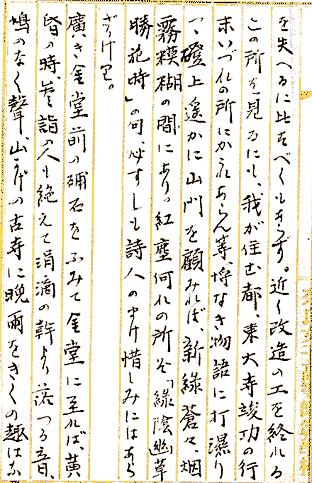 を失へるに比すべくもあらず。近く改造の工を終れる
この所を見るにも、我が住む都、東大寺竣功の行
末いづれの所にかあらん等、埒なき物語に打濕り
つ磴上遙かに山門を顧みれば、新緑蒼々、烟
霧模糊の間にあり。紅塵何れの所ぞ「緑陰幽草
勝花時」の句必ずしも詩人の負け惜しみにはあら
ざりけり。
廣き金堂前の礎石をふみて金堂に至れば黄
昏の時、参詣の人も絶えて涓滴の軒より落つる音、
鳩のなく聲、山かげの古寺に晩雨をきくの趣はこ